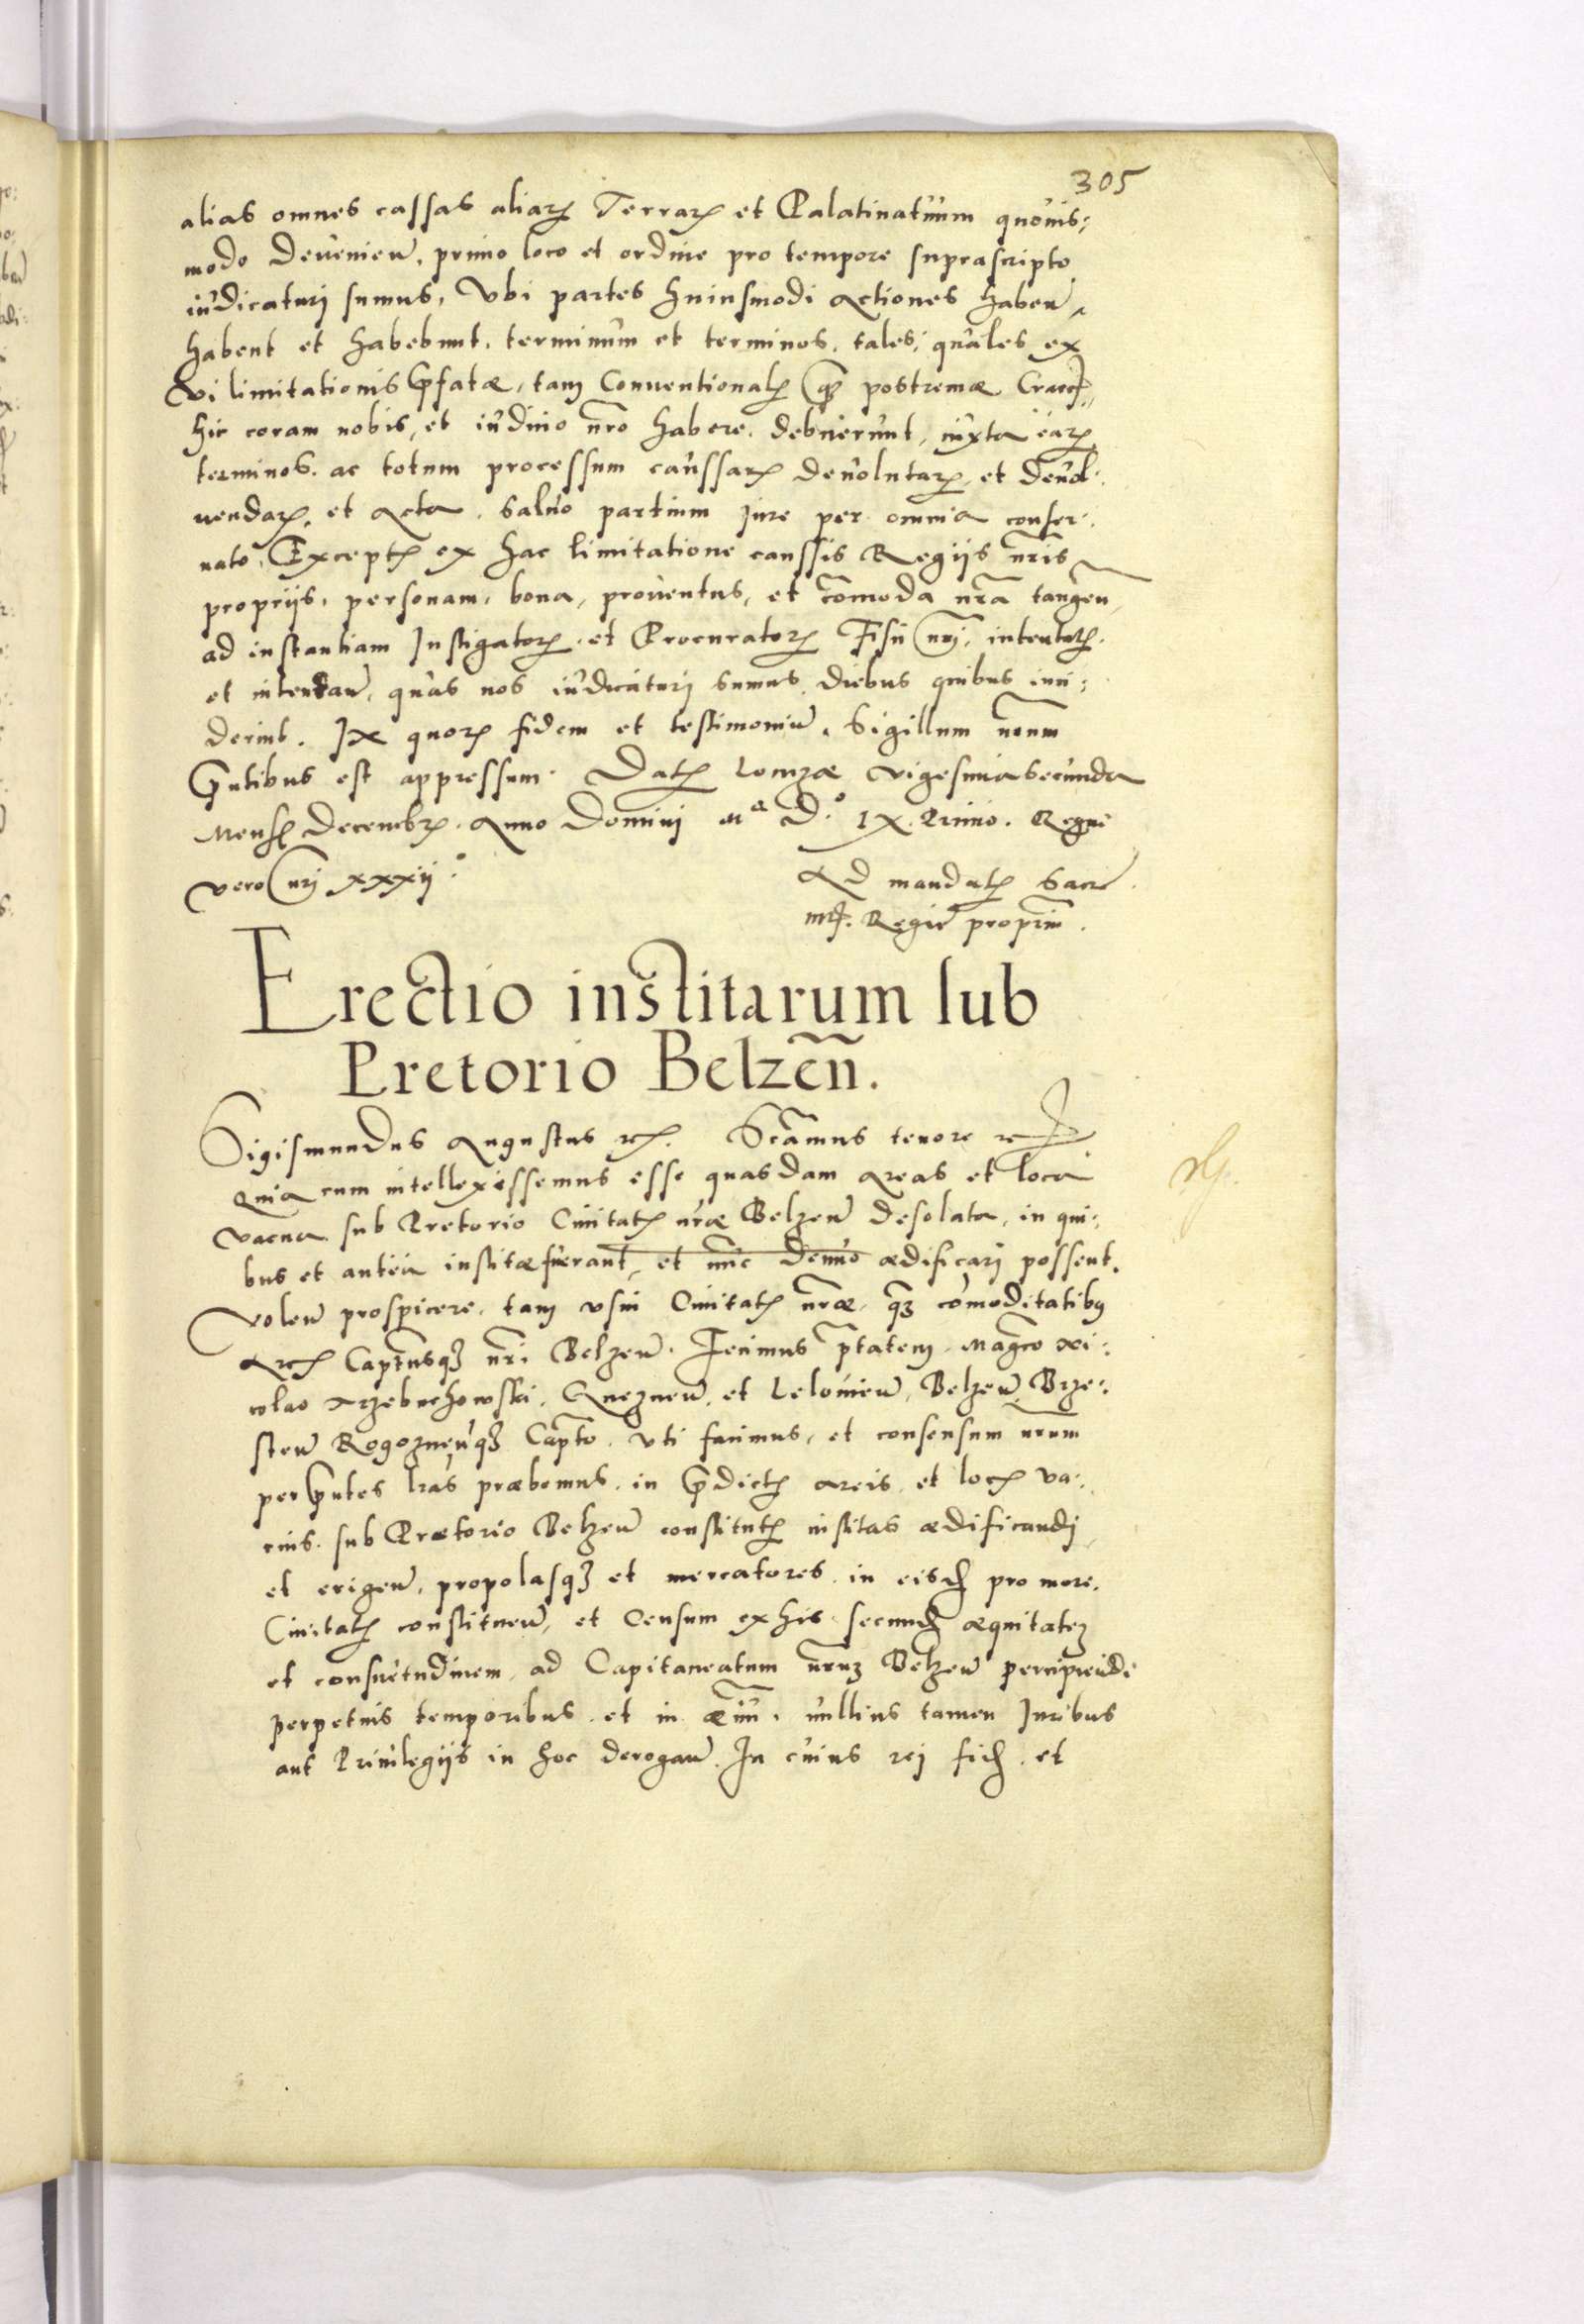 305
alias omnes cassas aliarꝝ Terrarꝝ et Palatinatuum quouis:
modo deuenien̄. primo loco et ordine pro tempore suprascripto
iudicaturi sumus, Vbi partes huiusmodi actiones haben̄
habent et habebunt, terminum et terminos, tales, quales ex
vi limitationis p̄fatæ, tam Conuentionalꝭ qȝ postremæ
hic coram nobis, et iudicio nr̄o habere debuerunt, iuxta earꝝ
terminos. ac totum processum caussarꝝ deuolutarꝝ et deuol:
uendarꝝ, et acta. saluo partium iure per omnia conser:
uato, Exceptꝭ ex hac limitatione caussis Regijs nr̄is
proprijs, personam, bona, prouentus, et com̄oda nr̄a tangen̄
ad instantiam Instigatorꝝ et Procuratorꝝ Fisci nr̄i, intentatꝭ.
et intentan̄, quas nos iudicaturi sumus diebus quibus inci:
derint. In quorꝝ fidem et testimoniū, Sigillum nr̄um
p̄ntibus est appressum. Datꝭ Lomzæ vigesima secunda
Mensꝭ Decembrꝭ. Anno Domini Mo D.o LX. Primo. Regni
vero nr̄i xxxij.o
Ad mandatꝭ Sacræ
mtꝭ. Regiæ propriū.
Erectio institarum sub
Pretorio Belzen̄.
Sigismundus Augustus rꝭ. Sc̄amus tenore rꝭ
Quia cum intellexissemus esse quasdam areas et loca
vacua sub Pretorio Ciuitatꝭ nr̄æ Belzen̄ desolata, in qui:
bus et antea institæ fuerant, et nunc denuo ædificari possent.
Volen̄ prospicere, tam vsui Ciuitatꝭ nr̄æ, qȝ com̄oditatibꝰ
Arcꝭ Captusqȝ nr̄i Belzen̄. Fecimus p̄tatem, Magco Ni:
colao Trzebuchowski, Gneznen̄, et Louicien̄, Belzen̄ Brze:
sten̄ Rogoznen̄qȝ Capto. vti facimus, et consensum nr̄um
per p̄ntes lr̄as præbemus, in p̄dictꝭ areis, et locꝭ va:
cuis sub Prætorio Belzen̄ constitutꝭ institas ædificandi
et erigen̄, propolasqȝ et mercatores in eisdꝫ pro more
Ciuitatꝭ constituen̄, et Censum ex his secundꝫ æquitatem
et consuetudinem, ad Capitaneatum nr̄um Belzen̄ percipiendi
perpetuis temporibus et in æuū, nullius tamen Iuribus
aut Priuilegijs in hoc derogan̄. In cuius rei fidꝫ. et